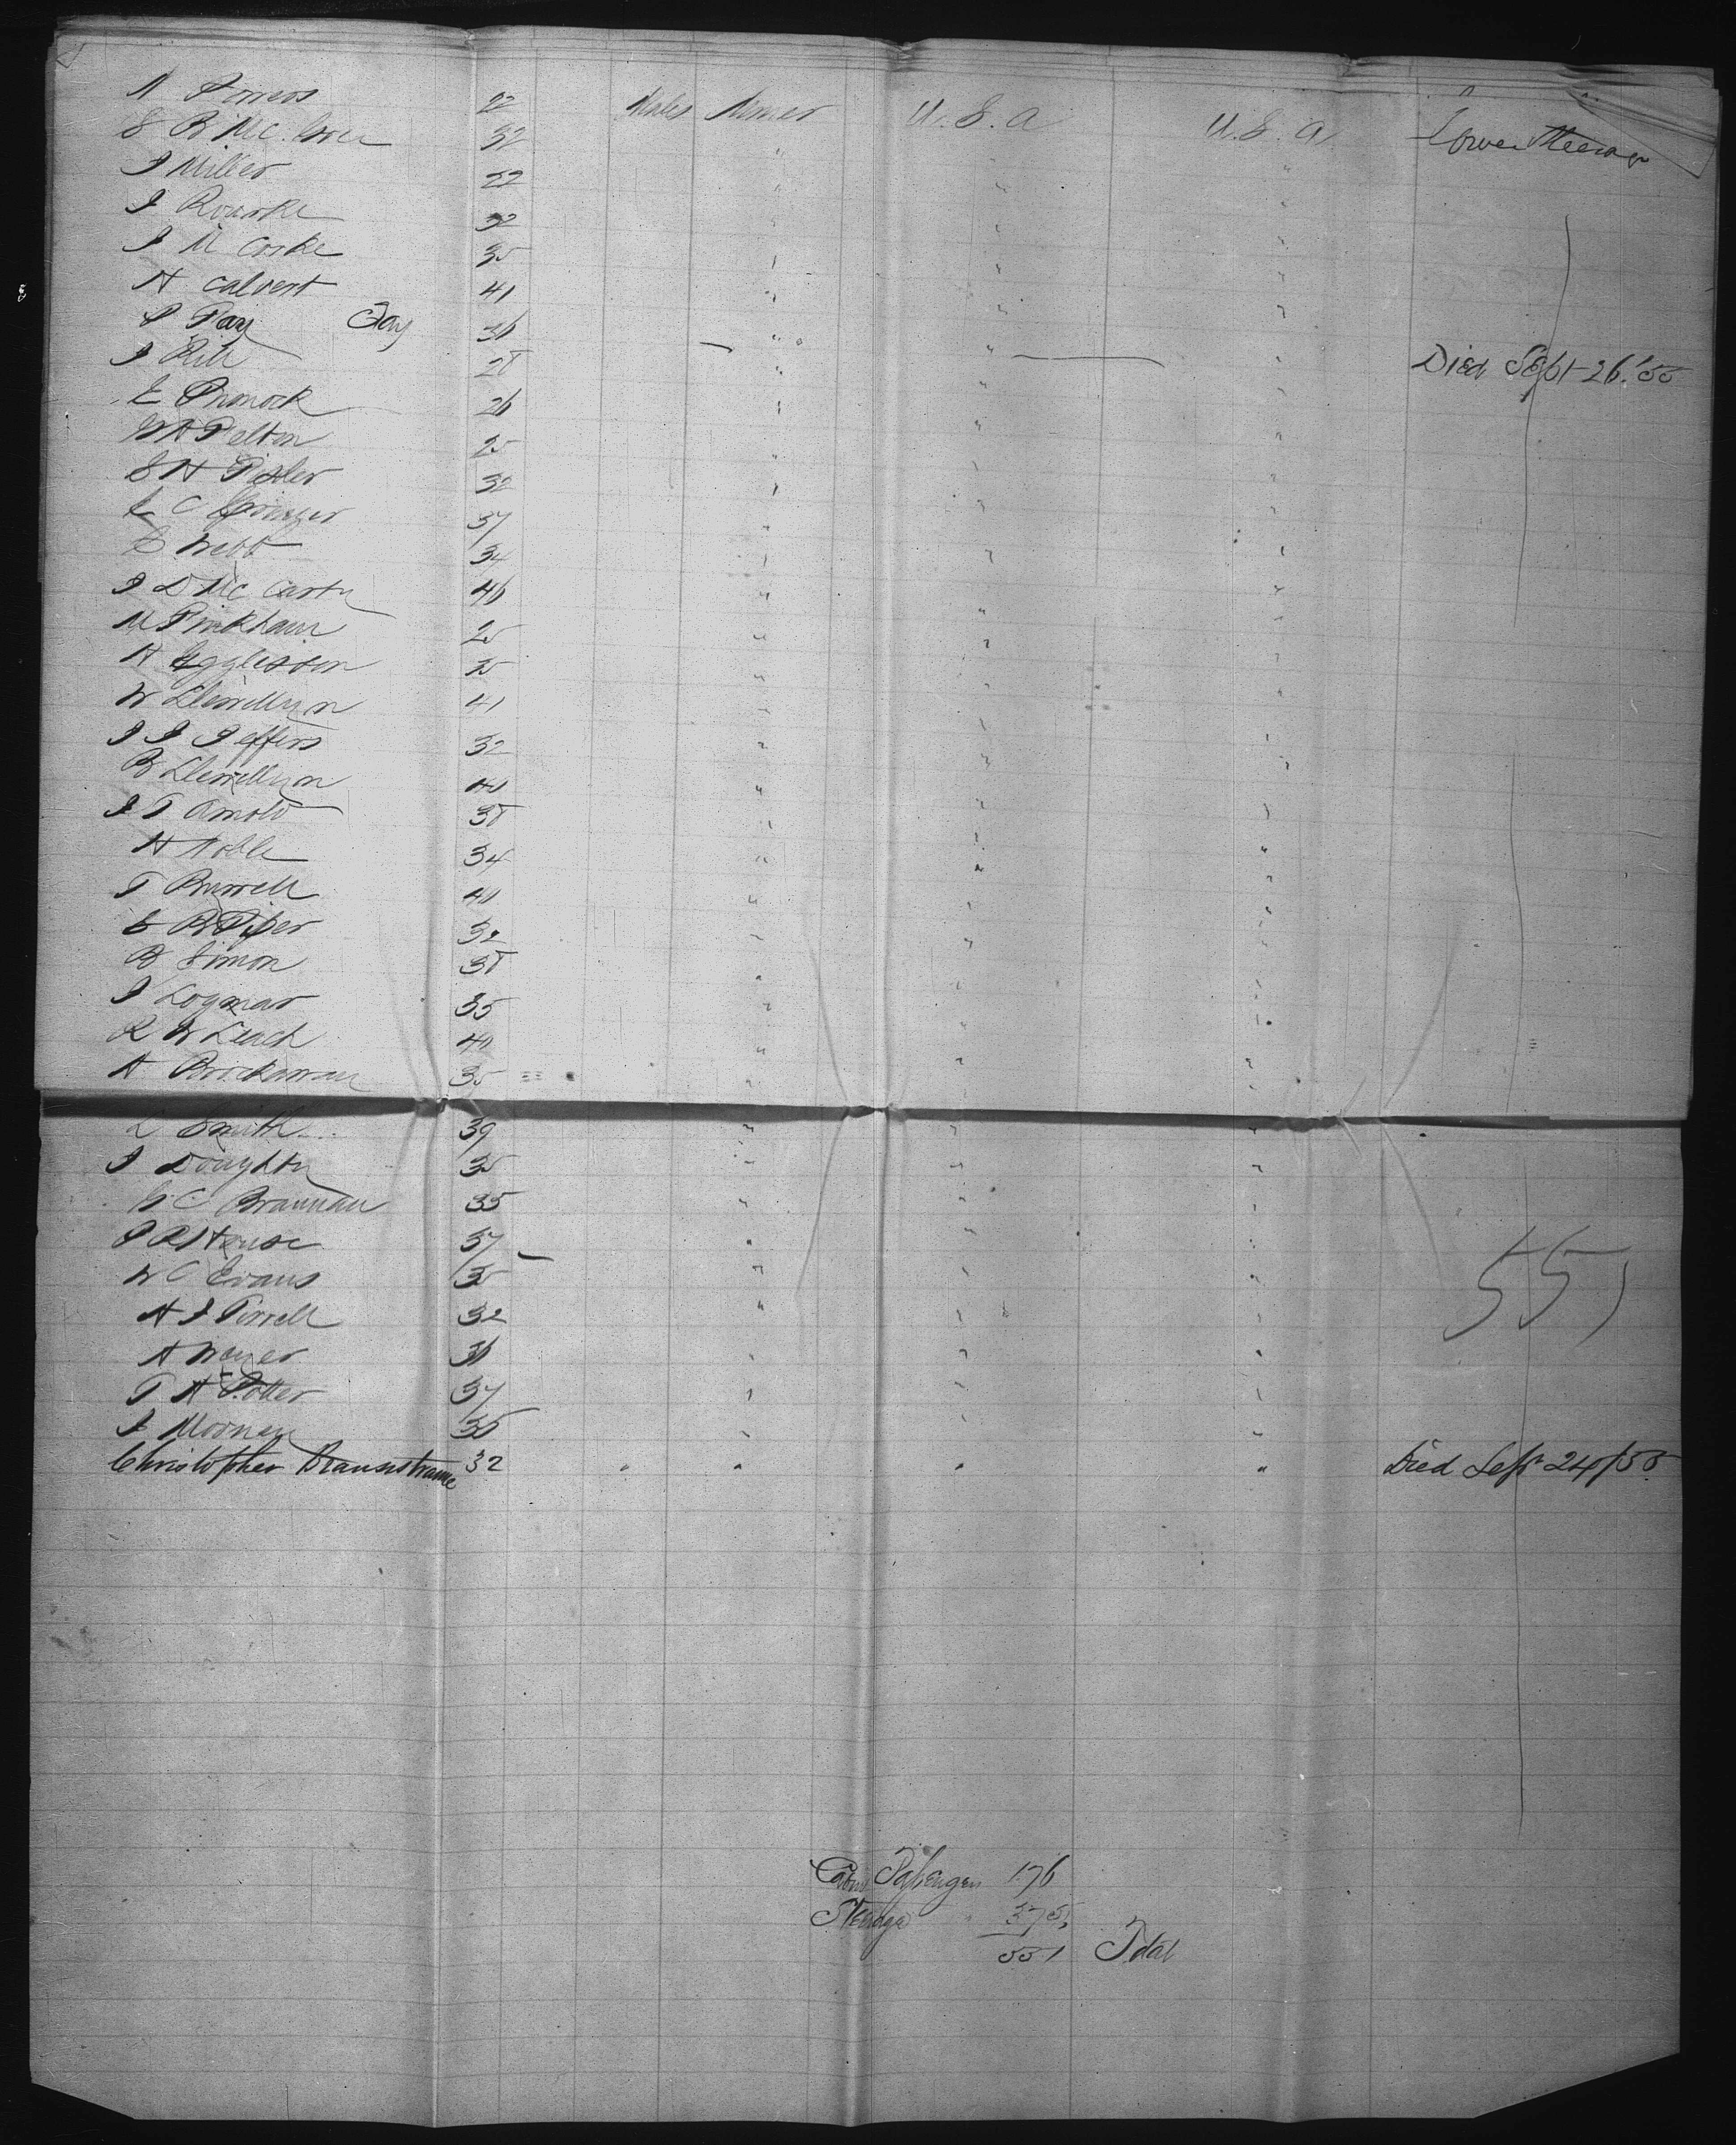 22 Males Miner U. S. A U. S. A Lower Steerage
S B Mc. 32 " " "
J Miller 22 " " "
J Rourke 32 " " "
J M Cooke 35 " " "
H Calvert 41 " " "
P Fay Fay 36 " " "
J Hill 28 " " " Died Sept 26. '55
E 26 " " "
W H Pelton 25 " " "
S H Pixler 32 " " "
E C Springer 37 " " "
C Webb 34 " " "
J D Mc Carty 46 " " "
M Pinkham 25 " " "
H Eggleston 35 " " "
W Llewellyn 41 " " "
J J Jeffers 32 " " "
B Llewellyn 40 " " "
J T Arnold 38 " " "
H Noble 34 " " "
T Burrell 40 " " "
E B Piper 32 " " "
B Simon 38 " " "
J Logmar 35 " " "
R W Leach 40 " " "
A Brockaway 35 " " "
L Smith 39 " " "
J Doughty 35 " " "
G C Brannan 35 " " "
J R House 37 " " "
W C Evans 35 " " "
551
H J Tirrell 32 " " "
A Wayer 36 " " "
T H Potter 37 " " "
J Moonan 35 " " "
Christopher 32 " " " " Died Sept 24/55.
Cabin Passengers 176
Steerage " 375
551 Total